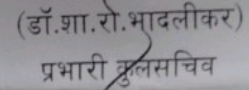 (डॉ.शा.रो.भादलीकर)
प्रभारी कुलसचिव